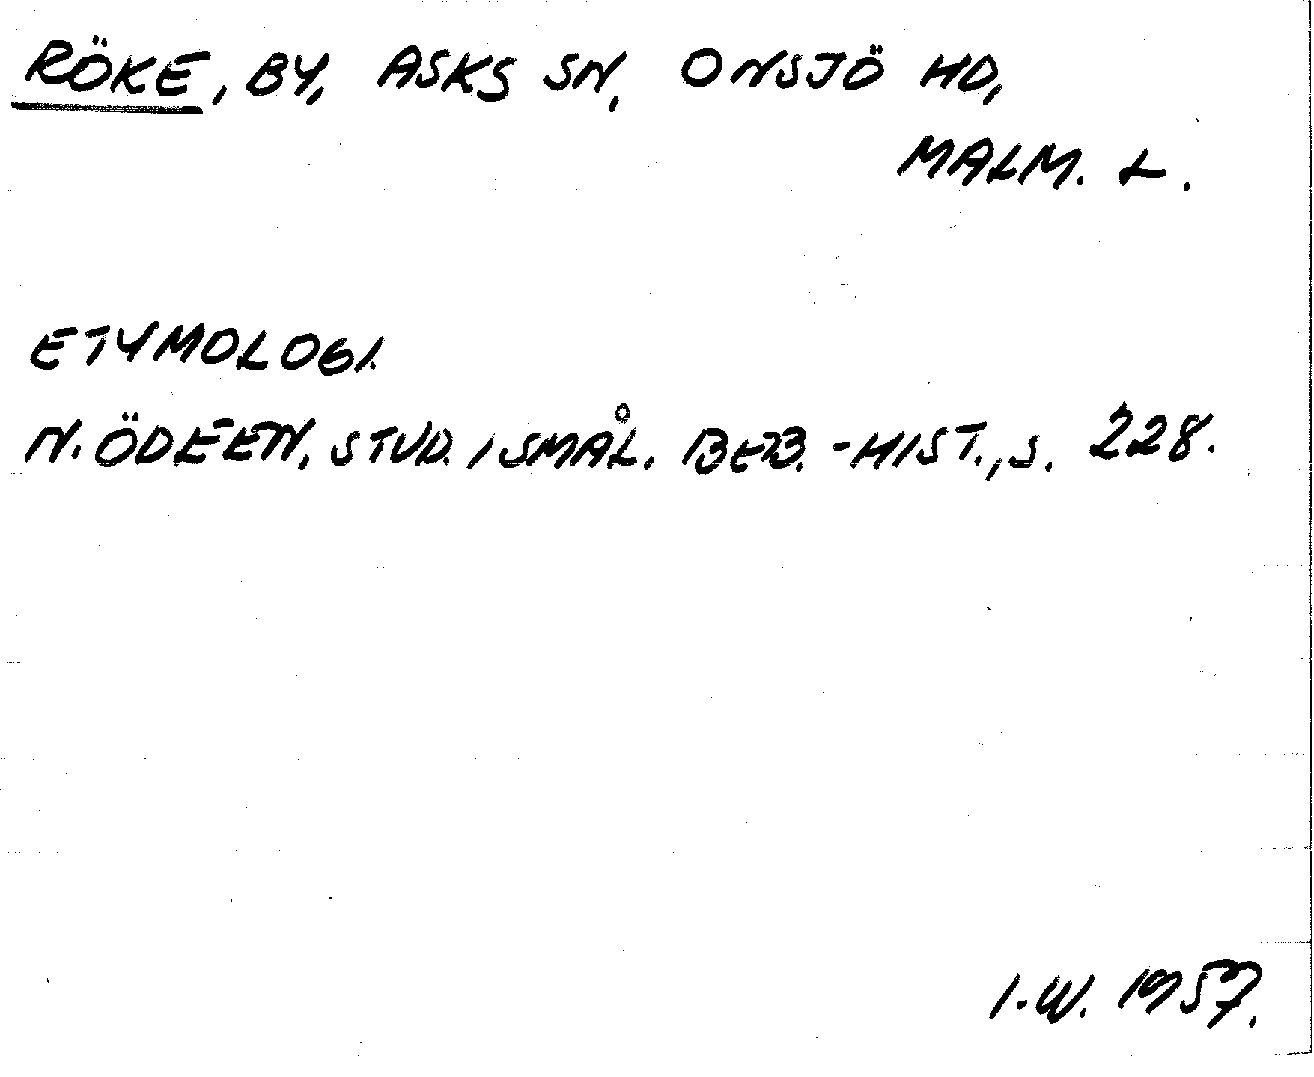 RÖKE, BY, ASKS SN, ONSJÖ HD,
MALM. L.
ETYMOLOGI.
N. ÖDEEN, STUD. I SMÅL. BEB.-HIST., S. 228.
I.W. 1957.